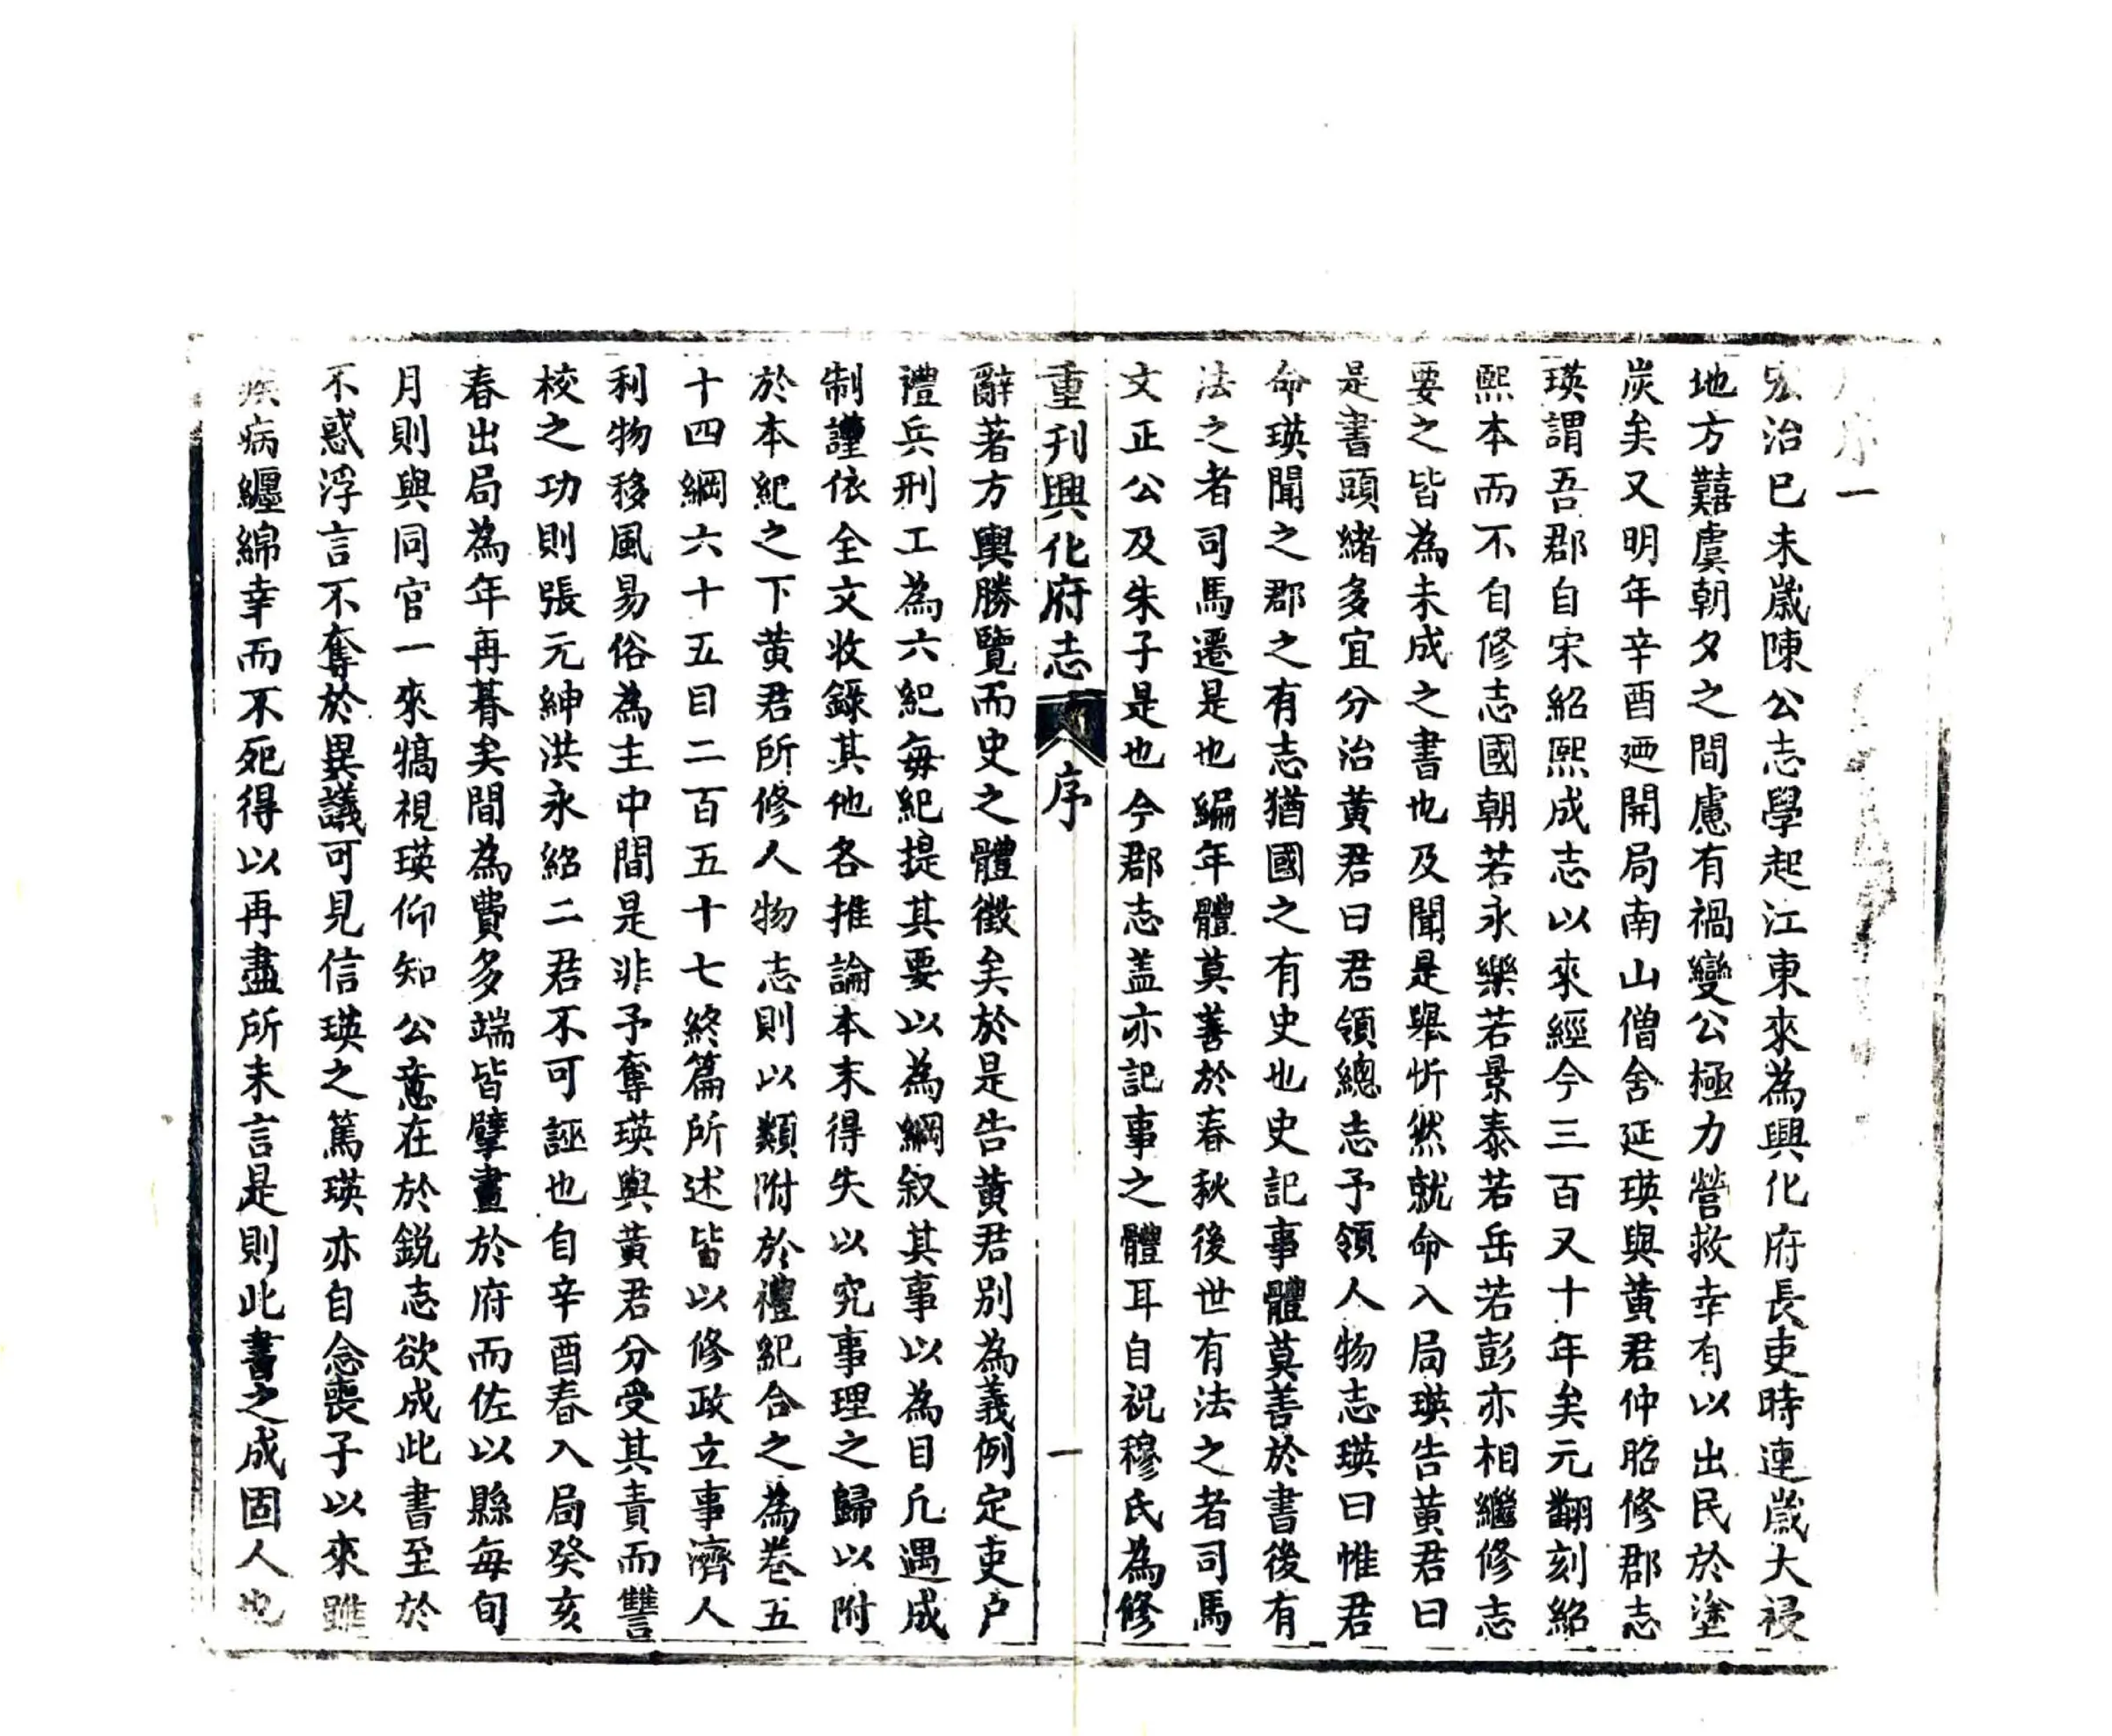 序一
宏治已未歲陳公志學起江東來為興化府長吏時連歲大祲
地方囏虞朝夕之間慮有禍變公極力營救幸有以出民於塗
炭矣又明年辛酉廼開局南山僧舍延瑛與黃君仲昭修郡志
瑛謂吾郡自宋紹熙成志以來經今三百又十年矣元翻刻紹
熙本而不自修志國朝若永樂若景泰若岳若彭亦相繼修志
要之皆為未成之書也及聞是舉忻然就命入局瑛告黃君曰
是書頭緒多宜分治黃君曰君領總志予領人物志瑛曰惟君
命瑛聞之郡之有志猶國之有史也史記事體莫善於書後有
法之者司馬遷是也編年體莫善於春秋後世有法之者司馬
文正公及朱子是也今郡志盖亦記事之體耳自祝穆氏為修
重刊興化府志 序 一
辭著方輿勝覽而史之體徵矣於是告黃君別為義例定吏户
禮兵刑工為六紀每紀提其要以為綱叙其事以為目凢遇成
制謹依全文收錄其他各推論本末得失以究事理之歸以附
於本紀之下黃君所修人物志則以類附於禮紀合之為卷五
十四綱六十五目二百五十七終篇所述皆以修政立事濟人
利物移風易俗為主中間是非予奪瑛與黃君分受其責而讐
校之功則張元紳洪永紹二君不可誣也自辛酉春入局癸亥
春出局為年再朞矣間為費多端皆擘畫於府而佐以縣每旬
月則與同官一來犒視瑛仰知公意在於銳志欲成此書至於
不惑浮言不奪於異議可見信瑛之篤瑛亦自念喪子以來雖
疾病纏綿幸而不死得以再盡所未言是則此書之成固人也